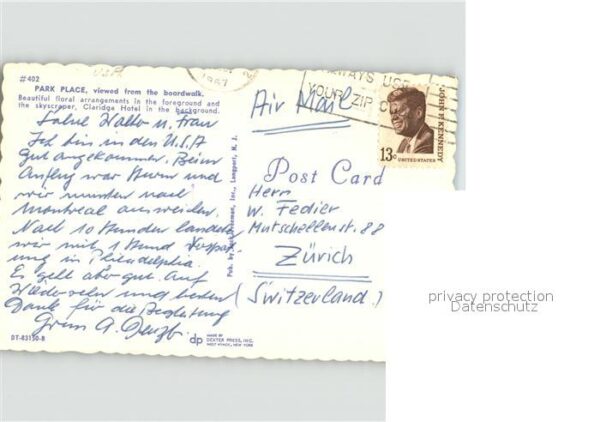 #402
PARK PLACE, viewed from the boardwalk.
Beautiful floral arrangements in the foreground and
the skyscraper, Claridge Hotel in the background.
Walter u. Frau
Ich bin in den U.S.A
gut angekommen. Beim
Anflug war Sturm und
wir mussten nach
Montreal ausweichen.
Nach 10 Stunden landeten
wir mit 1 Stund Verspät-
ung in Philadelphia.
Es geht aber gut. Auf
Wiedersehn und besten
Dank für die Begleitung
Gruss A.
DT-83150-B
Pub. by Freeman, Inc., Longport, N. J.
MADE BY
dp DEXTER PRESS, INC.
WEST NYACK, NEW YORK
1967
ALWAYS USE
YOUR ZIP CODE
Air Mail
JOHN F. KENNEDY
13c UNITED STATES
Post Card
Herrn
W. Fedier
Mutschellenst. 88
Zürich
(Switzerland)
privacy protection
Datenschutz